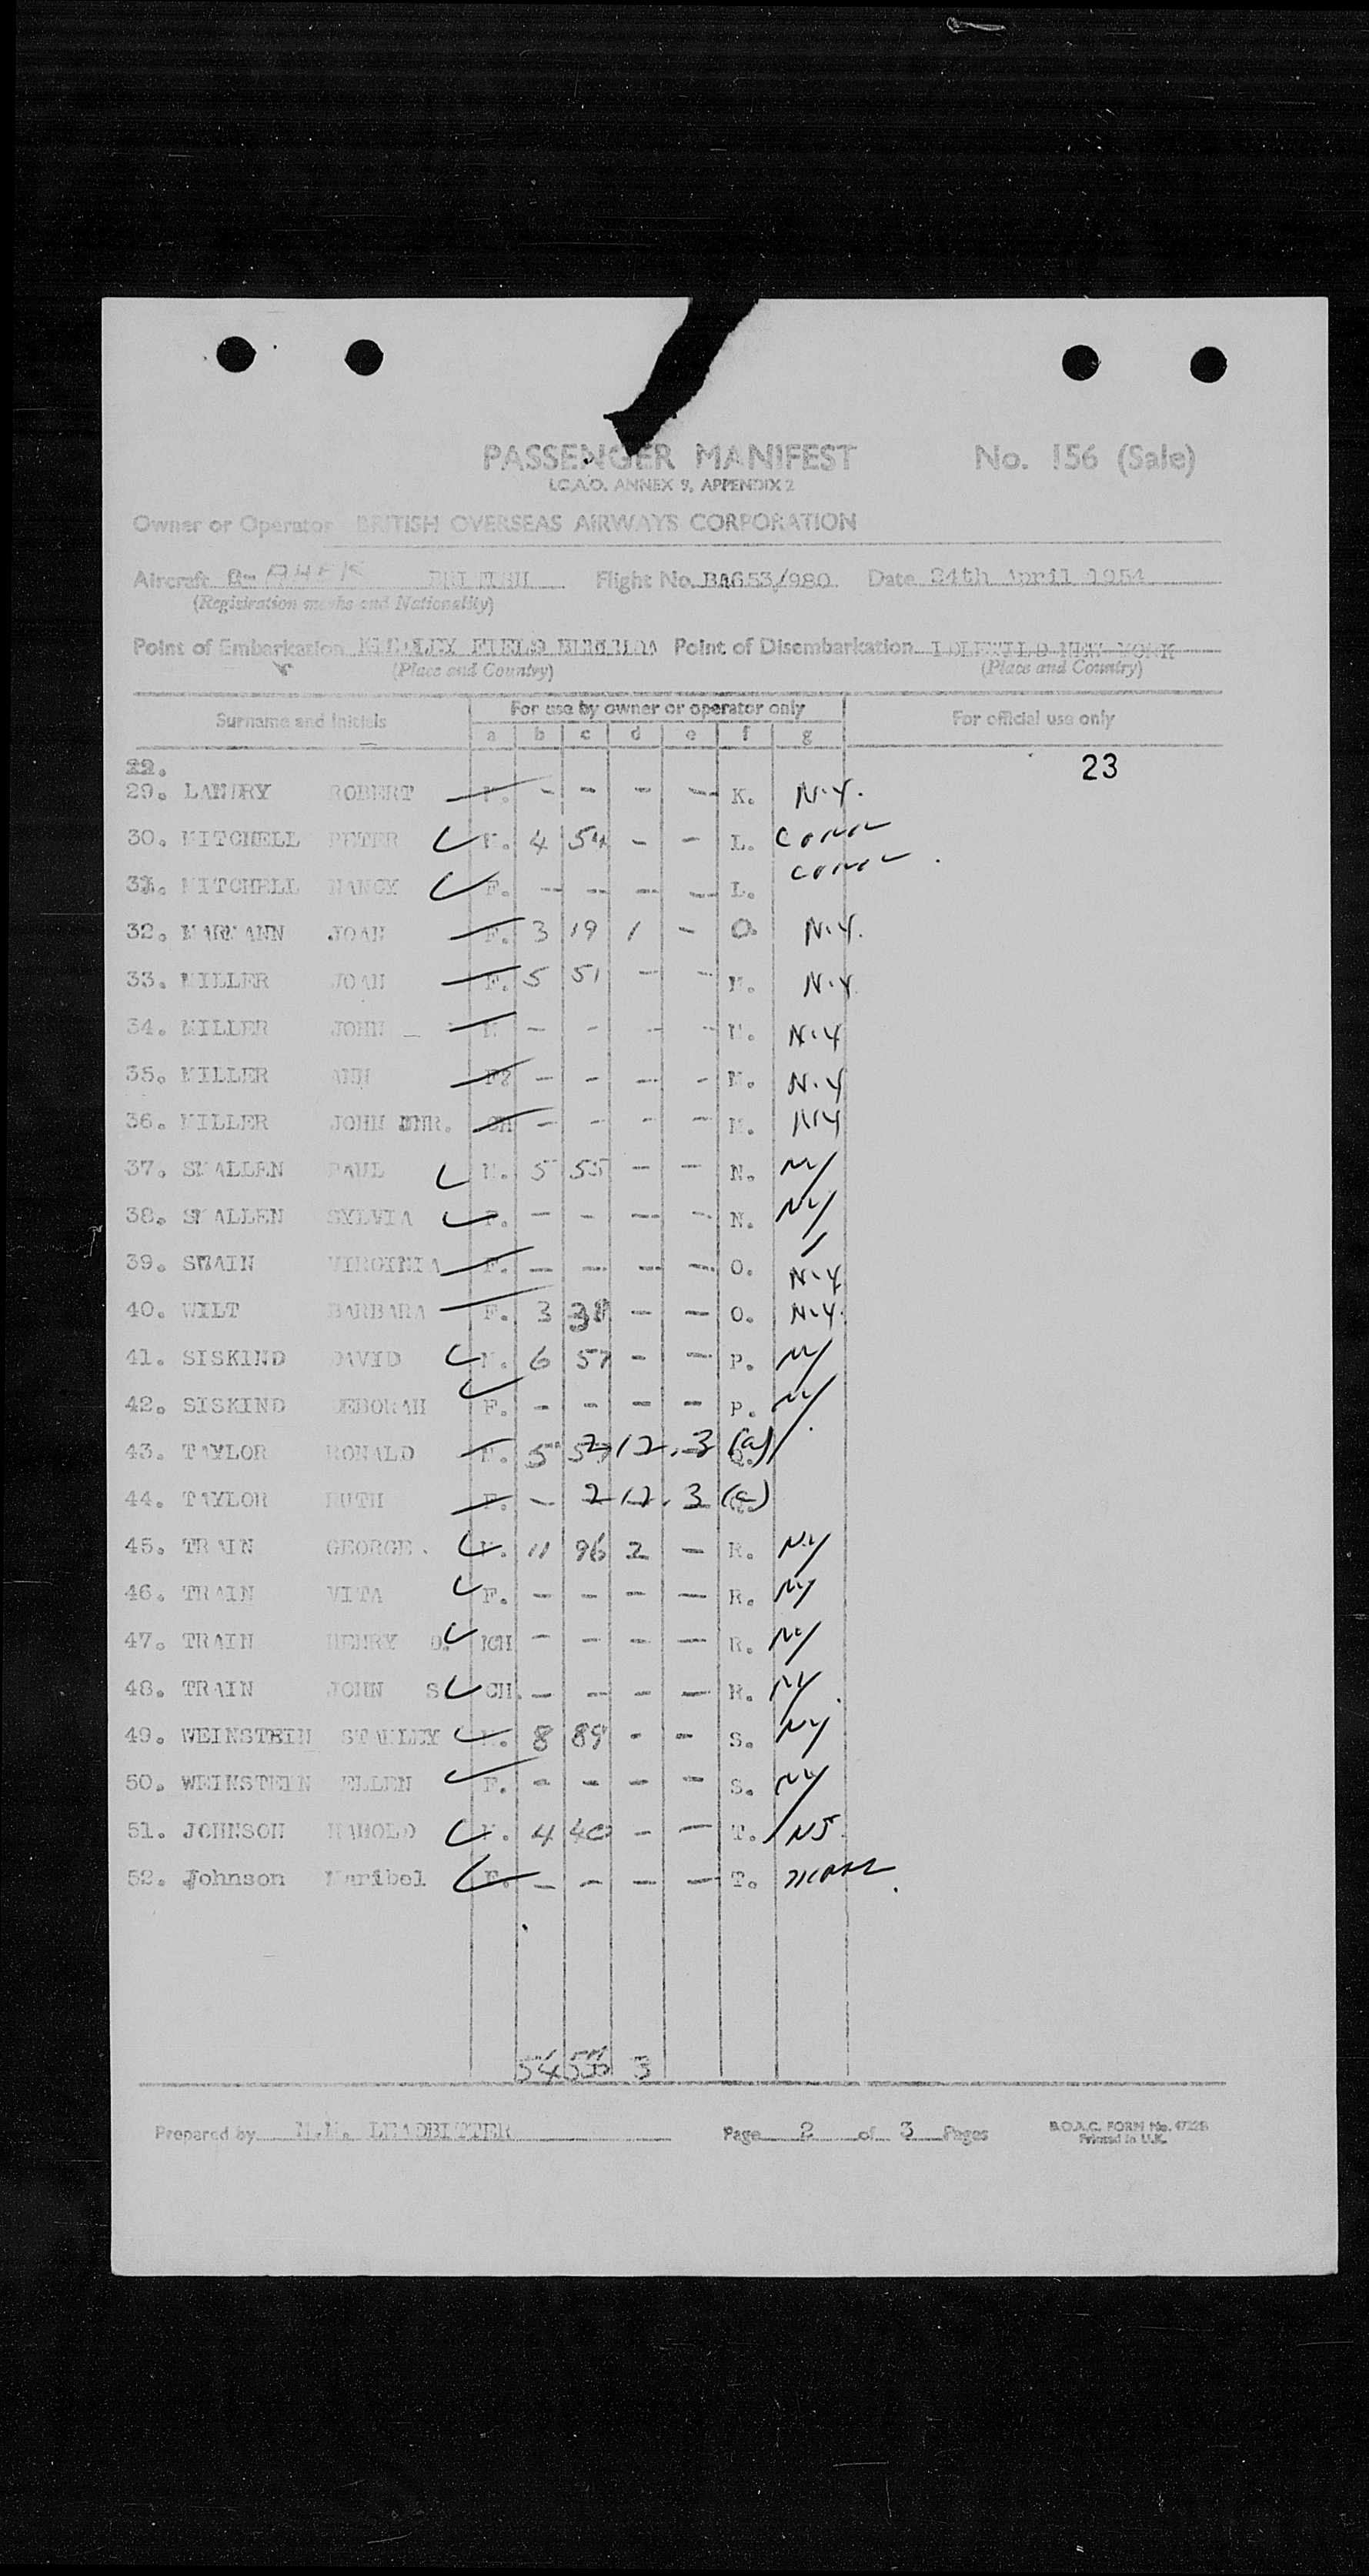 PASSENGER MANIFEST No. 156 (Sale)
I.C.A.O. ANNEX 9, APPENDIX 2
Owner or Operator BRITISH OVERSEAS AIRWAYS CORPORATION
Aircraft G- Flight No. BA653/980 Date 24th April 1954
(Registration marks and Nationality)
Point of Embarkation KINDLEY FIELD BERMUDA Point of Disembarkation IDLEWILD NEW YORK
(Place and Country) (Place and Country)
Surname and Initials For use by owner or operator only For official use only
a b c d e f g
23
29. LANDRY ROBERT - - - - K. N.Y.
30. MITCHELL PETER 4 54 - - L. Conn
31. MITCHELL NANCY F. - - - - L. Conn
32. JOAN F. 3 19 1 - O. N.Y.
33. MILLER JOAN F. 5 51 - - M. N.Y.
34. MILLER JOHN M - - - - M. N.Y
35. MILLER ANN F - - - - M. N.Y
36. MILLER JOHN JNR. CH - - - - M. NY
37. SMALLEN PAUL M. 5 55 - - N. NY
38. SMALLEN SYLVIA F. - - - - N. NY
39. SWAIN VIRGINIA F. - - - - O. N.Y
40. WILT BARBARA F. 3 38 - - O. N.Y.
41. SISKIND DAVID M. 6 57 - - P. NY
42. SISKIND DEBORAH F. - - - - P. NY
43. TAYLOR RONALD M. 5 212.3 (a)
44. TAYLOR RUTH F. - 212.3 (a)
45. TRAIN GEORGE. M. 11 96 2 - R. NY
46. TRAIN VITA F. - - - - R. NY
47. TRAIN HENRY CH - - - - R. NY
48. TRAIN JOHN S CH. - - - - R. NY
49. WEINSTEIN STANLEY M. 8 89 - - S. NY
50. WEINSTEIN ELLEN F. - - - - S. NY
51. JOHNSON HAROLD M. 4 40 - - T. NJ.
52. Johnson Maribel F. - - - - T.
54 3
Prepared by LEADBITTER Page 2 of 3 Pages B.O.A.C. FORM No.
Printed in U.K.